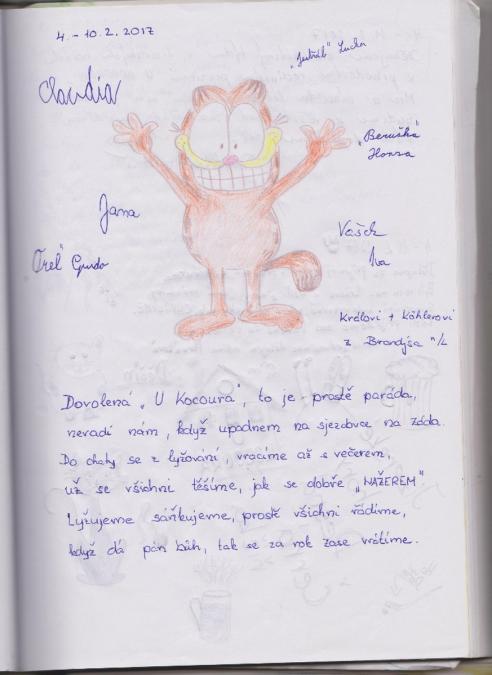 4. - 10. 2. 2017
„Jestřáb" Lucka
Claudia
„Beruška"
Honza
Jana
Vašek
Iva
„Orel" Guido
Královi + Köhlerovi
z Brandýsa n/L
Dovolená „U Kocoura", to je prostě paráda,
nevadí nám, když upadnem na sjezdovce na záda.
Do chaty se z lyžování, vracíme až s večerem,
už se všichni těšíme, jak se dobře „NAŽEREM"
Lyžujeme sáňkujeme, prostě všichni řádíme,
když dá pán bůh, tak se za rok zase vrátíme.